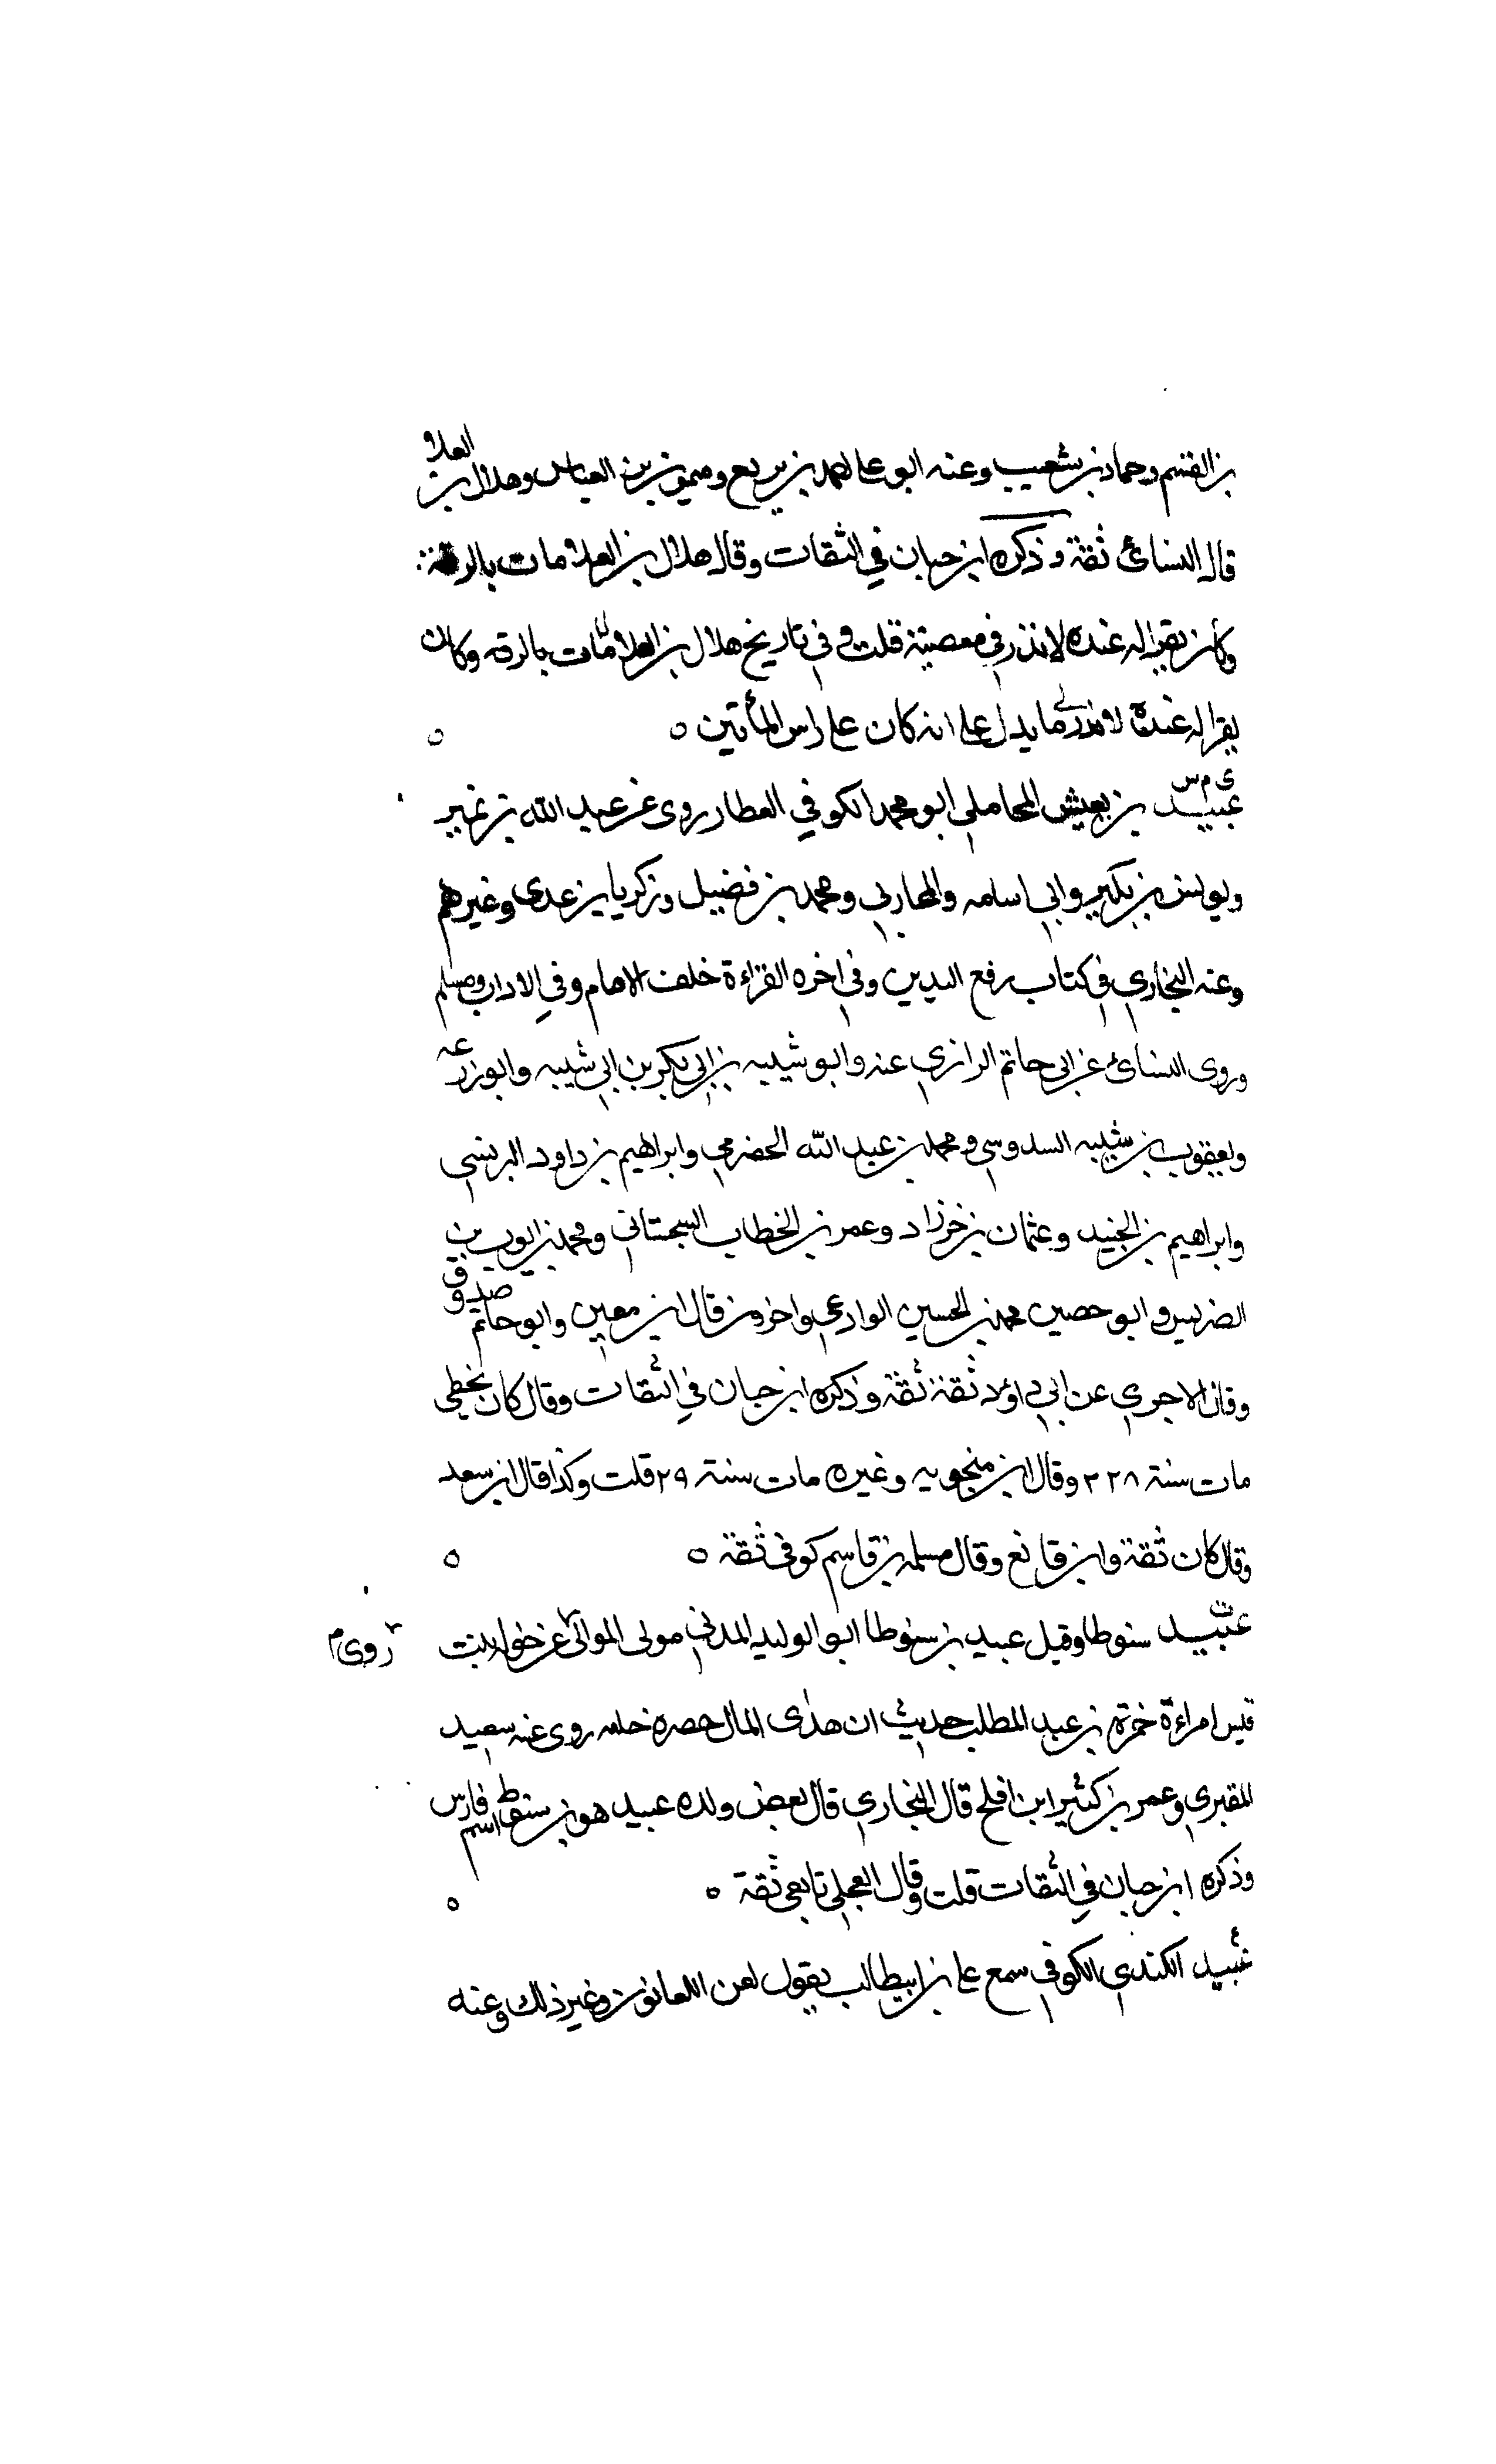 بن القسم وحماد بن شعيب وعنه ابو علي احمد بن بزيع وميمون بن العباس وهلال بن العلاء
قال النسائي ثقة وذكره ابن حبان في الثقات وقال هلال بن العلاء مات بالرقة
وكان يقرا له عنده لا نذر في معصية قلت وفي تاريخ هلال بن العلاء مات بالرقه وكان
يقرا له عنده ما يدل على انه كان على راس المأتين ه
ى م س
عبيد بن يعيش المحاملي ابو محمد الكوفي العطار روى عن عبد الله بن نمير
ويونس بن بكير وابي اسامه والمحاربي ومحمد بن فضيل وزكريا بن عدي وغيرهم
وعنه البخاري في كتاب رفع اليدين وفي اخره القراءة خلف الامام وفي الاداب ومسلم
وروى النسائي عن ابي حاتم الرازي عنه وابو شيبه بن ابي بكر بن ابي شيبه وابو زرعه
ويعقوب بن شيبه السدوسي ومحمد بن عبد الله الحضرمي وابراهيم بن داود البرنسي
وابراهيم بن الجنيد وعثمان بن خرزاد وعمر بن الخطاب السجستاني ومحمد بن ايوب بن
الضريس وابو حصين محمد بن الحسين الوادعي واخرون قال ابن معين وابو حاتم صدوق
وقال الاجري عن ابي داود ثقة ثقة وذكره ابن حبان في الثقات وقال كان يخطي
مات سنة ٢٢٨ وقال ابن منجويه وغيره مات سنة ٢٩ قلت وكذا قال ابن سعد
وقال كان ثقة وابن قانع وقال مسلمه بن قاسم كوفي ثقة ه
عبيد سنوطا وقيل عبيد بن سنوطا ابو الوليد المدني مولى الموالي عن خوله بنت
روى م
قيس امراءة حمزة بن عبد المطلب حديث ان هذا المال خضره حلوه روى عنه سعيد
المقبري وعمر بن كثير ابن افلح قال البخاري قال بعض ولده عبيد هو بن سنوطا اسم فارس
وذكره ابن حبان في الثقات قلت وقال العجلي تابعي ثقة ه
عبيد الكندي الكوفي سمع علي بن ابيطالب يقول لعن اللعانون وغير ذلك وعنه